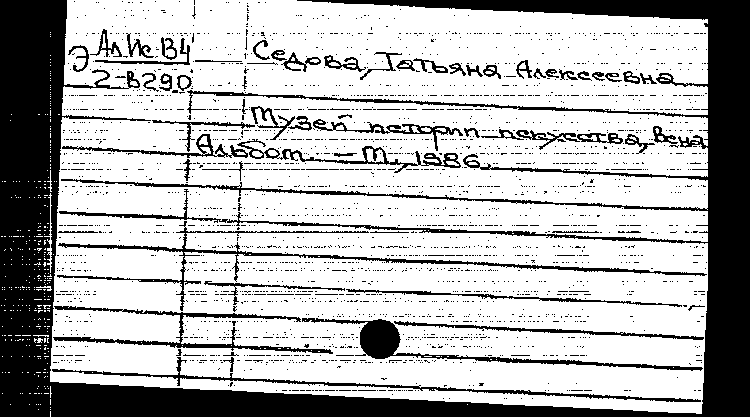 Э АлИс В4
2-В290
Седова, Татьяна Алексеевна
Музей истории искусства, Вена
Альбом. – М., 1986.